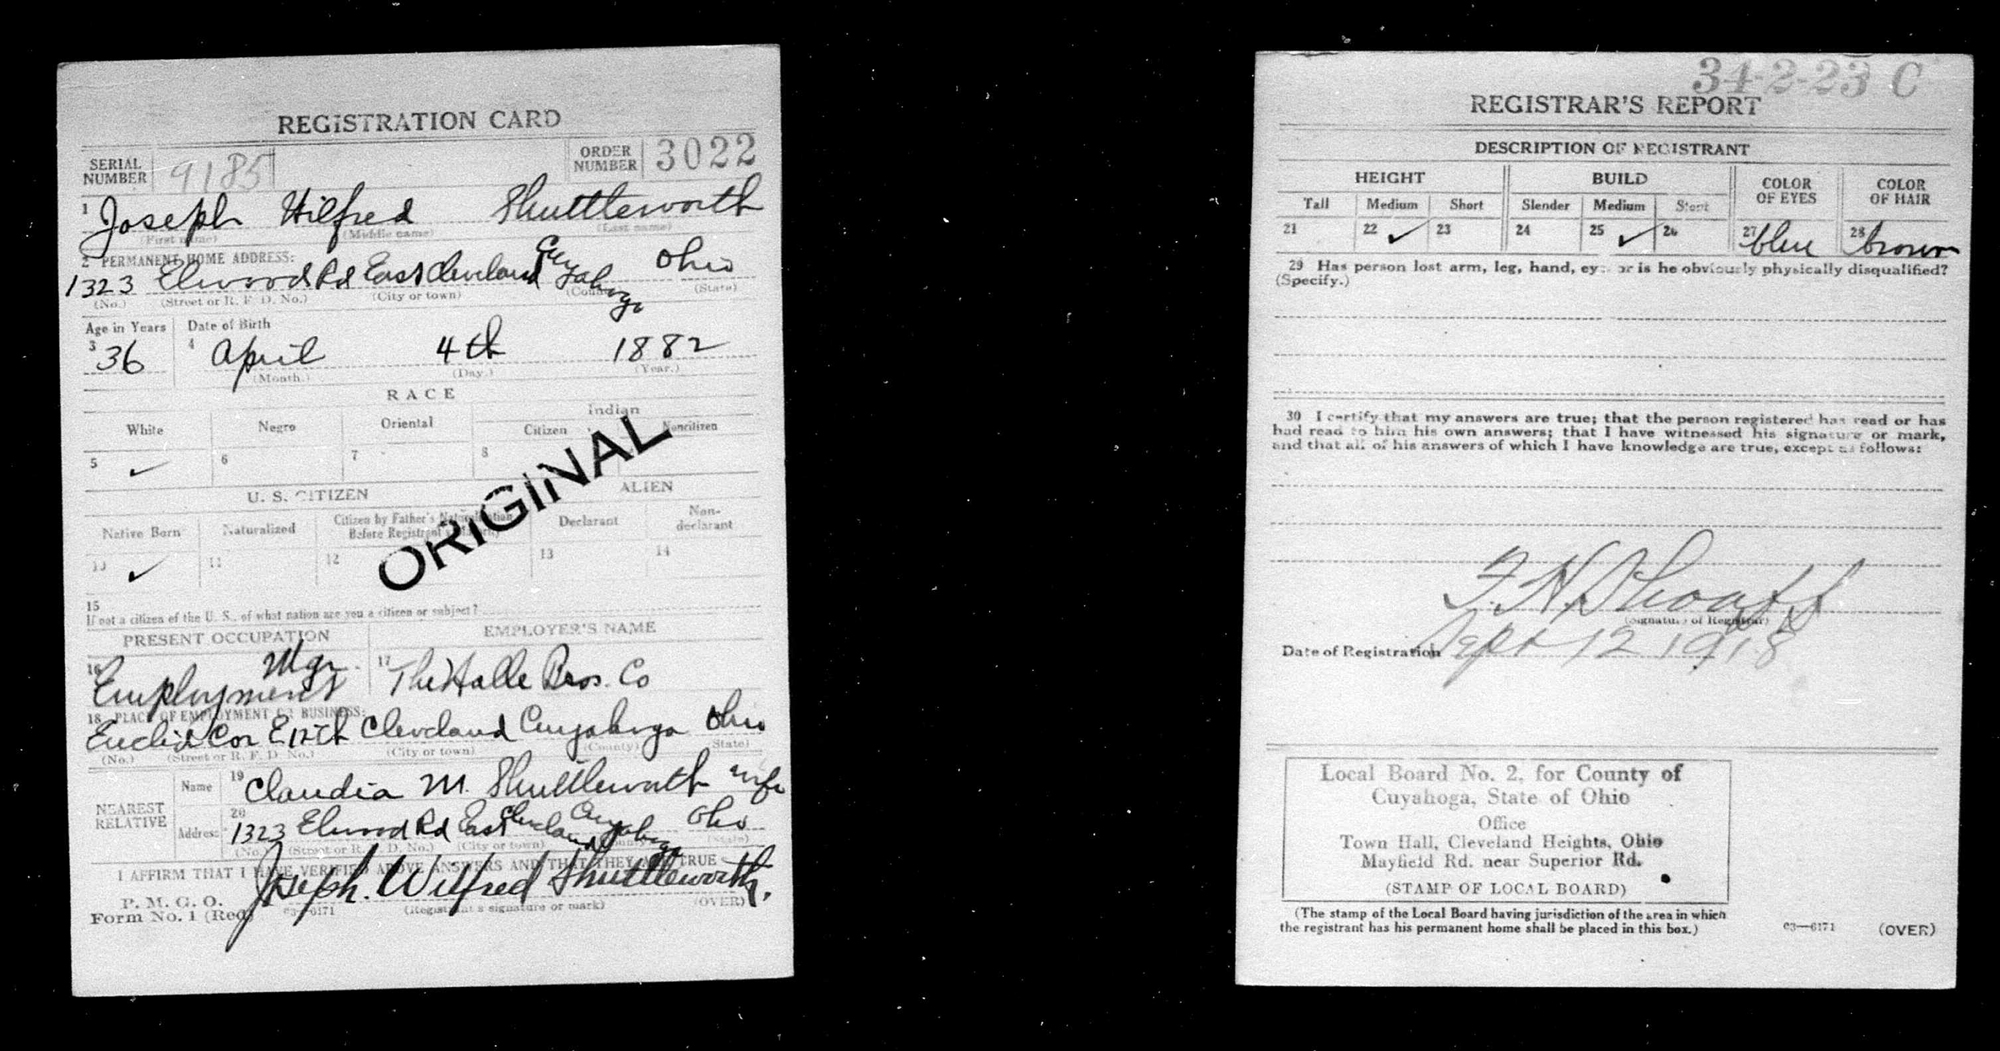 REGISTRATION CARD
SERIAL NUMBER 9185 ORDER NUMBER 3022
1 Joseph Wilfred Shuttleworth
(First name) (Middle name) (Last name)
2 PERMANENT HOME ADDRESS:
1323 Elwood Rd East Cleveland Cuyahoga Ohio
(No.) (Street or R. F. D. No.) (City or town) (County) (State)
Age in Years Date of Birth
3 36 4 April 4th 1882
(Month.) (Day.) (Year.)
RACE
White Negro Oriental Indian
Citizen Noncitizen
5 ✓ 6 7 8
ORIGINAL
U. S. CITIZEN ALIEN
Native Born Naturalized Citizen by Father's Naturalization Before Registrant's Majority Declarant Non-declarant
10 ✓ 11 12 13 14
15
If not a citizen of the U. S., of what nation are you a citizen or subject?
PRESENT OCCUPATION EMPLOYER'S NAME
16 Employment Mgr. 17 The Halle Bros. Co
18 PLACE OF EMPLOYMENT OR BUSINESS:
Euclid Cor E 12th Cleveland Cuyahoga Ohio
(No.) (Street or R. F. D. No.) (City or town) (County) (State)
NEAREST RELATIVE
Name 19 Claudia M. Shuttleworth wife
Address 20 1323 Elwood Rd East Cleveland Cuyahoga Ohio
(No.) (Street or R. F. D. No.) (City or town) (County) (State)
I AFFIRM THAT I HAVE VERIFIED ABOVE ANSWERS AND THAT THEY ARE TRUE
P. M. G. O.
Form No. 1 (Red) 03—6171 Joseph. Wilfred Shuttleworth.
(Registrant's signature or mark) (OVER)
34-2-23 C
REGISTRAR'S REPORT
DESCRIPTION OF REGISTRANT
HEIGHT BUILD COLOR OF EYES COLOR OF HAIR
Tall Medium Short Slender Medium Stout
21 22 ✓ 23 24 25 ✓ 26 27 blue 28 brown
29 Has person lost arm, leg, hand, eye, or is he obviously physically disqualified?
(Specify.)
30 I certify that my answers are true; that the person registered has read or has
had read to him his own answers; that I have witnessed his signature or mark,
and that all of his answers of which I have knowledge are true, except as follows:
F. H. Shoaff
(Signature of Registrar)
Date of Registration Sept 12 1918
Local Board No. 2, for County of
Cuyahoga, State of Ohio
Office
Town Hall, Cleveland Heights, Ohio
Mayfield Rd. near Superior Rd.
(STAMP OF LOCAL BOARD)
(The stamp of the Local Board having jurisdiction of the area in which
the registrant has his permanent home shall be placed in this box.)
03—6171 (OVER)